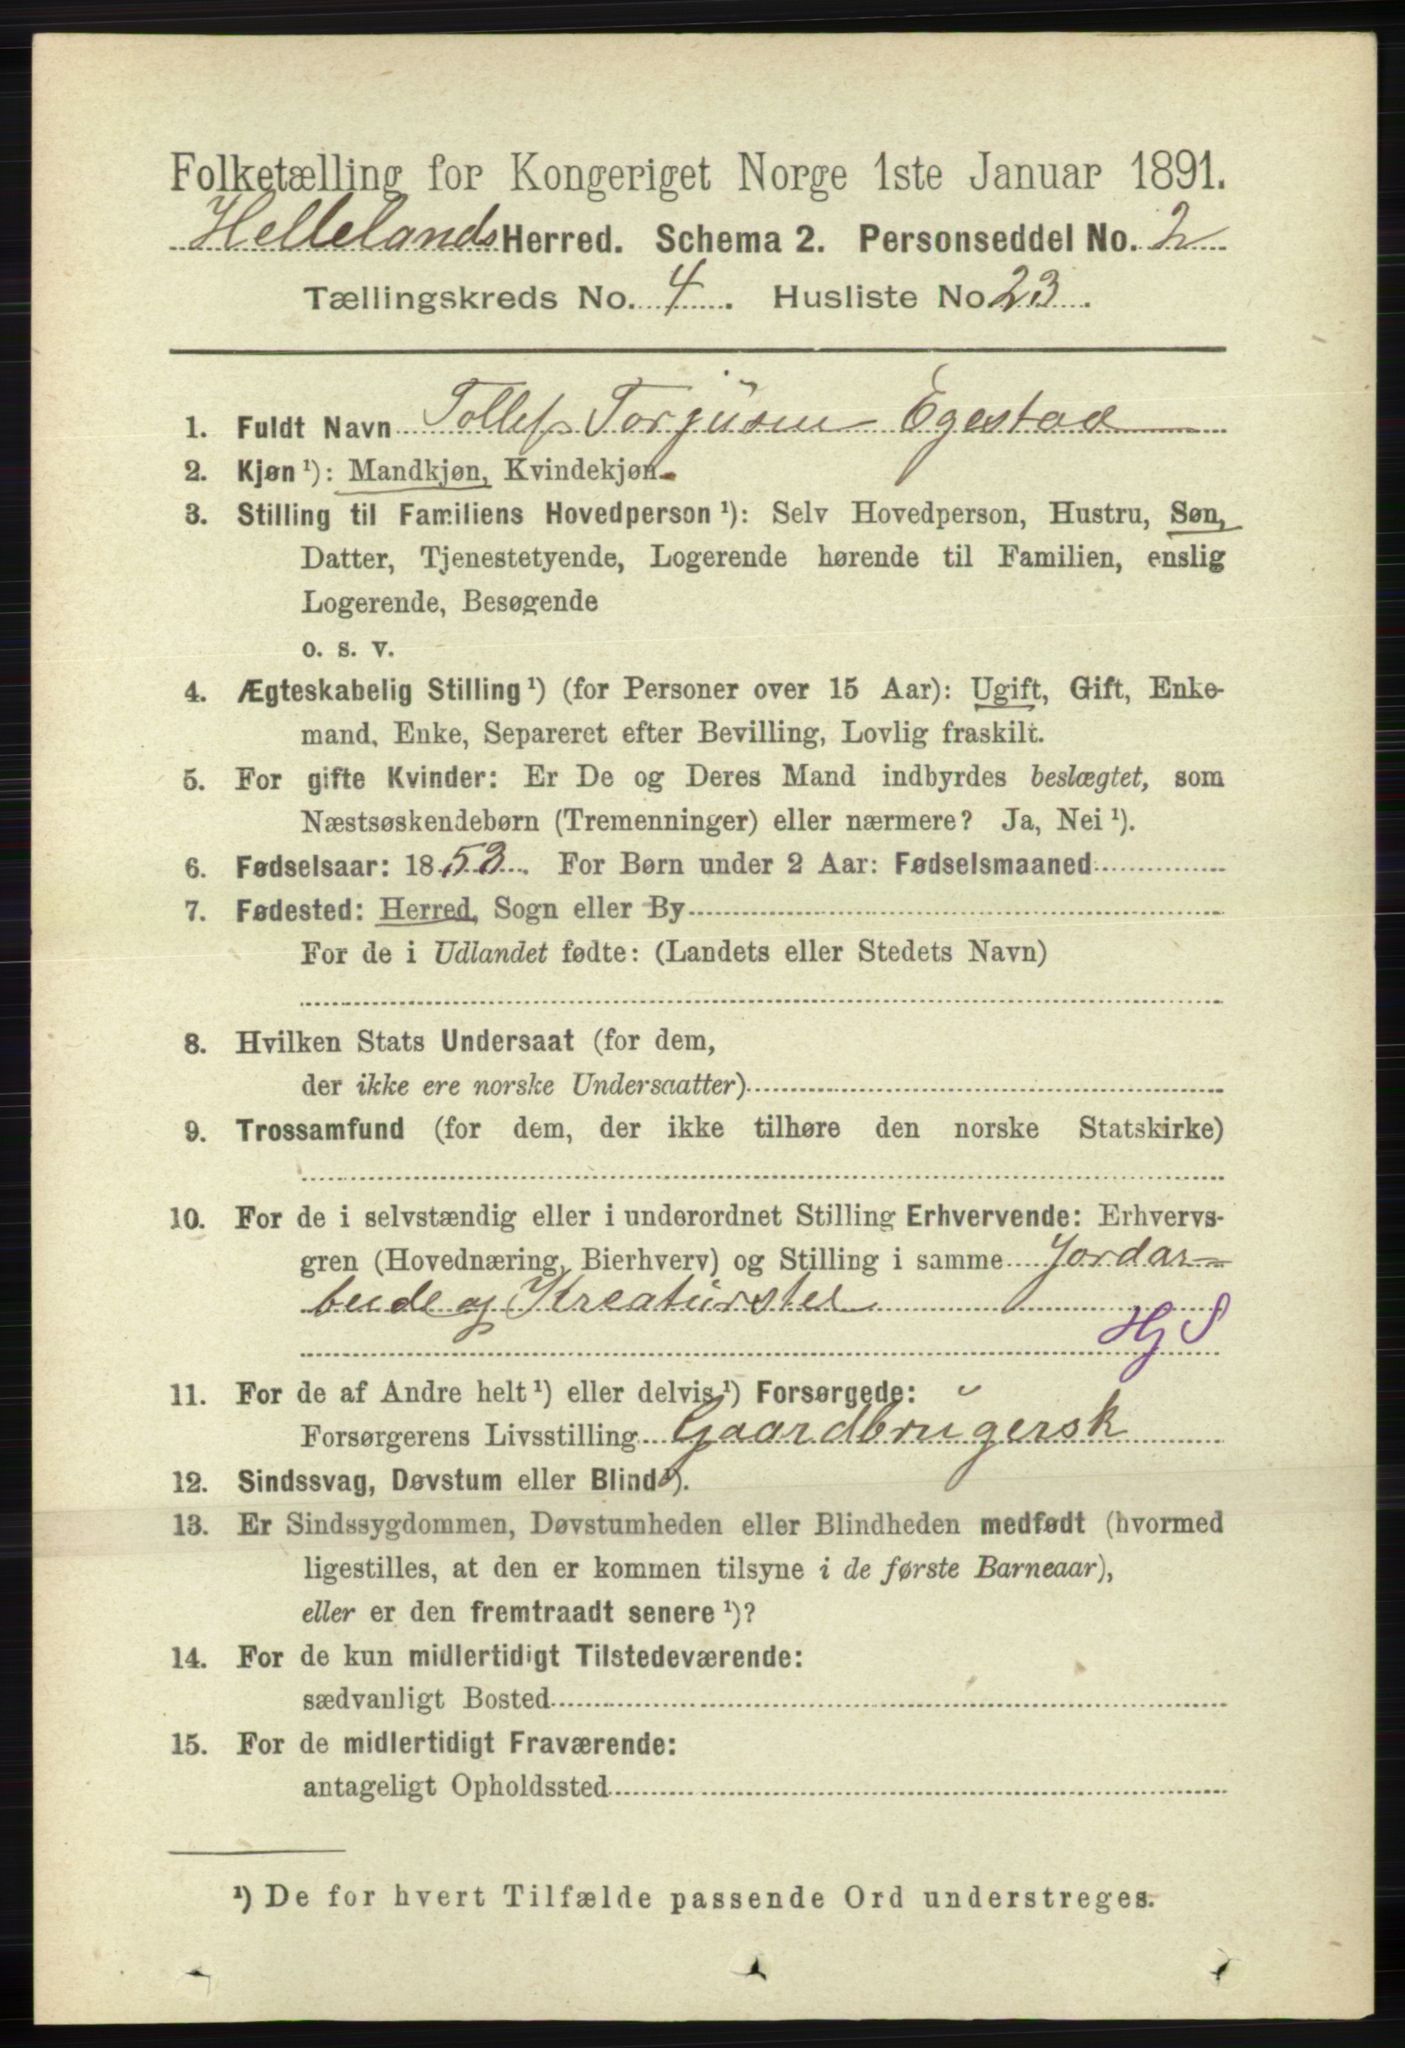 Folketælling for Kongeriget Norge 1ste Januar 1891.
Hellelands Herred. Schema 2. Personseddel No. 2
Tællingskreds No. 4. Husliste No 23.
1. Fuldt Navn Tollef Torjusen Egestad
2. Kjøn ¹): Mandkjøn, Kvindekjøn.
3. Stilling til Familiens Hovedperson ¹): Selv Hovedperson, Hustru, Søn,
Datter, Tjenestetyende, Logerende hørende til Familien, enslig
Logerende, Besøgende
o. s. v.
4. Ægteskabelig Stilling ¹) (for Personer over 15 Aar): Ugift, Gift, Enke-
mand, Enke, Separeret efter Bevilling, Lovlig fraskilt.
5. For gifte Kvinder: Er De og Deres Mand indbyrdes beslægtet, som
Næstsøskendebørn (Tremenninger) eller nærmere? Ja, Nei ¹).
6. Fødselsaar: 1853. For Børn under 2 Aar: Fødselsmaaned
7. Fødested: Herred, Sogn eller By
For de i Udlandet fødte: (Landets eller Stedets Navn)
8. Hvilken Stats Undersaat (for dem,
der ikke ere norske Undersaatter)
9. Trossamfund (for dem, der ikke tilhøre den norske Statskirke)
10. For de i selvstændig eller i underordnet Stilling Erhvervende: Erhvervs-
gren (Hovednæring, Bierhverv) og Stilling i samme Jordar-
beide og Kreaturstel
Hj S
11. For de af Andre helt ¹) eller delvis ¹) Forsørgede:
Forsørgerens Livsstilling Gaardbrugersk
12. Sindssvag, Døvstum eller Blind ¹).
13. Er Sindssygdommen, Døvstumheden eller Blindheden medfødt (hvormed
ligestilles, at den er kommen tilsyne i de første Barneaar),
eller er den fremtraadt senere ¹)?
14. For de kun midlertidigt Tilstedeværende:
sædvanligt Bosted
15. For de midlertidigt Fraværende:
antageligt Opholdssted
¹) De for hvert Tilfælde passende Ord understreges.